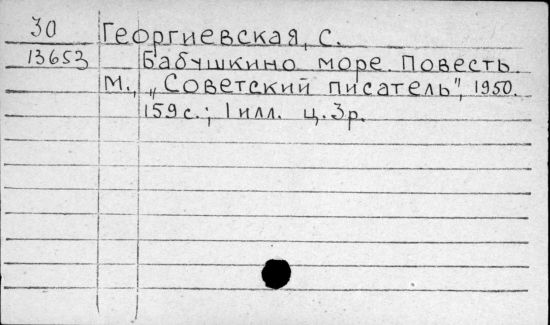 30 Георгиевская, С.
13653 Бабушкино море. Повесть.
М., „Советский писатель", 1950.
159 с.; 1 илл. ц. 3 р.